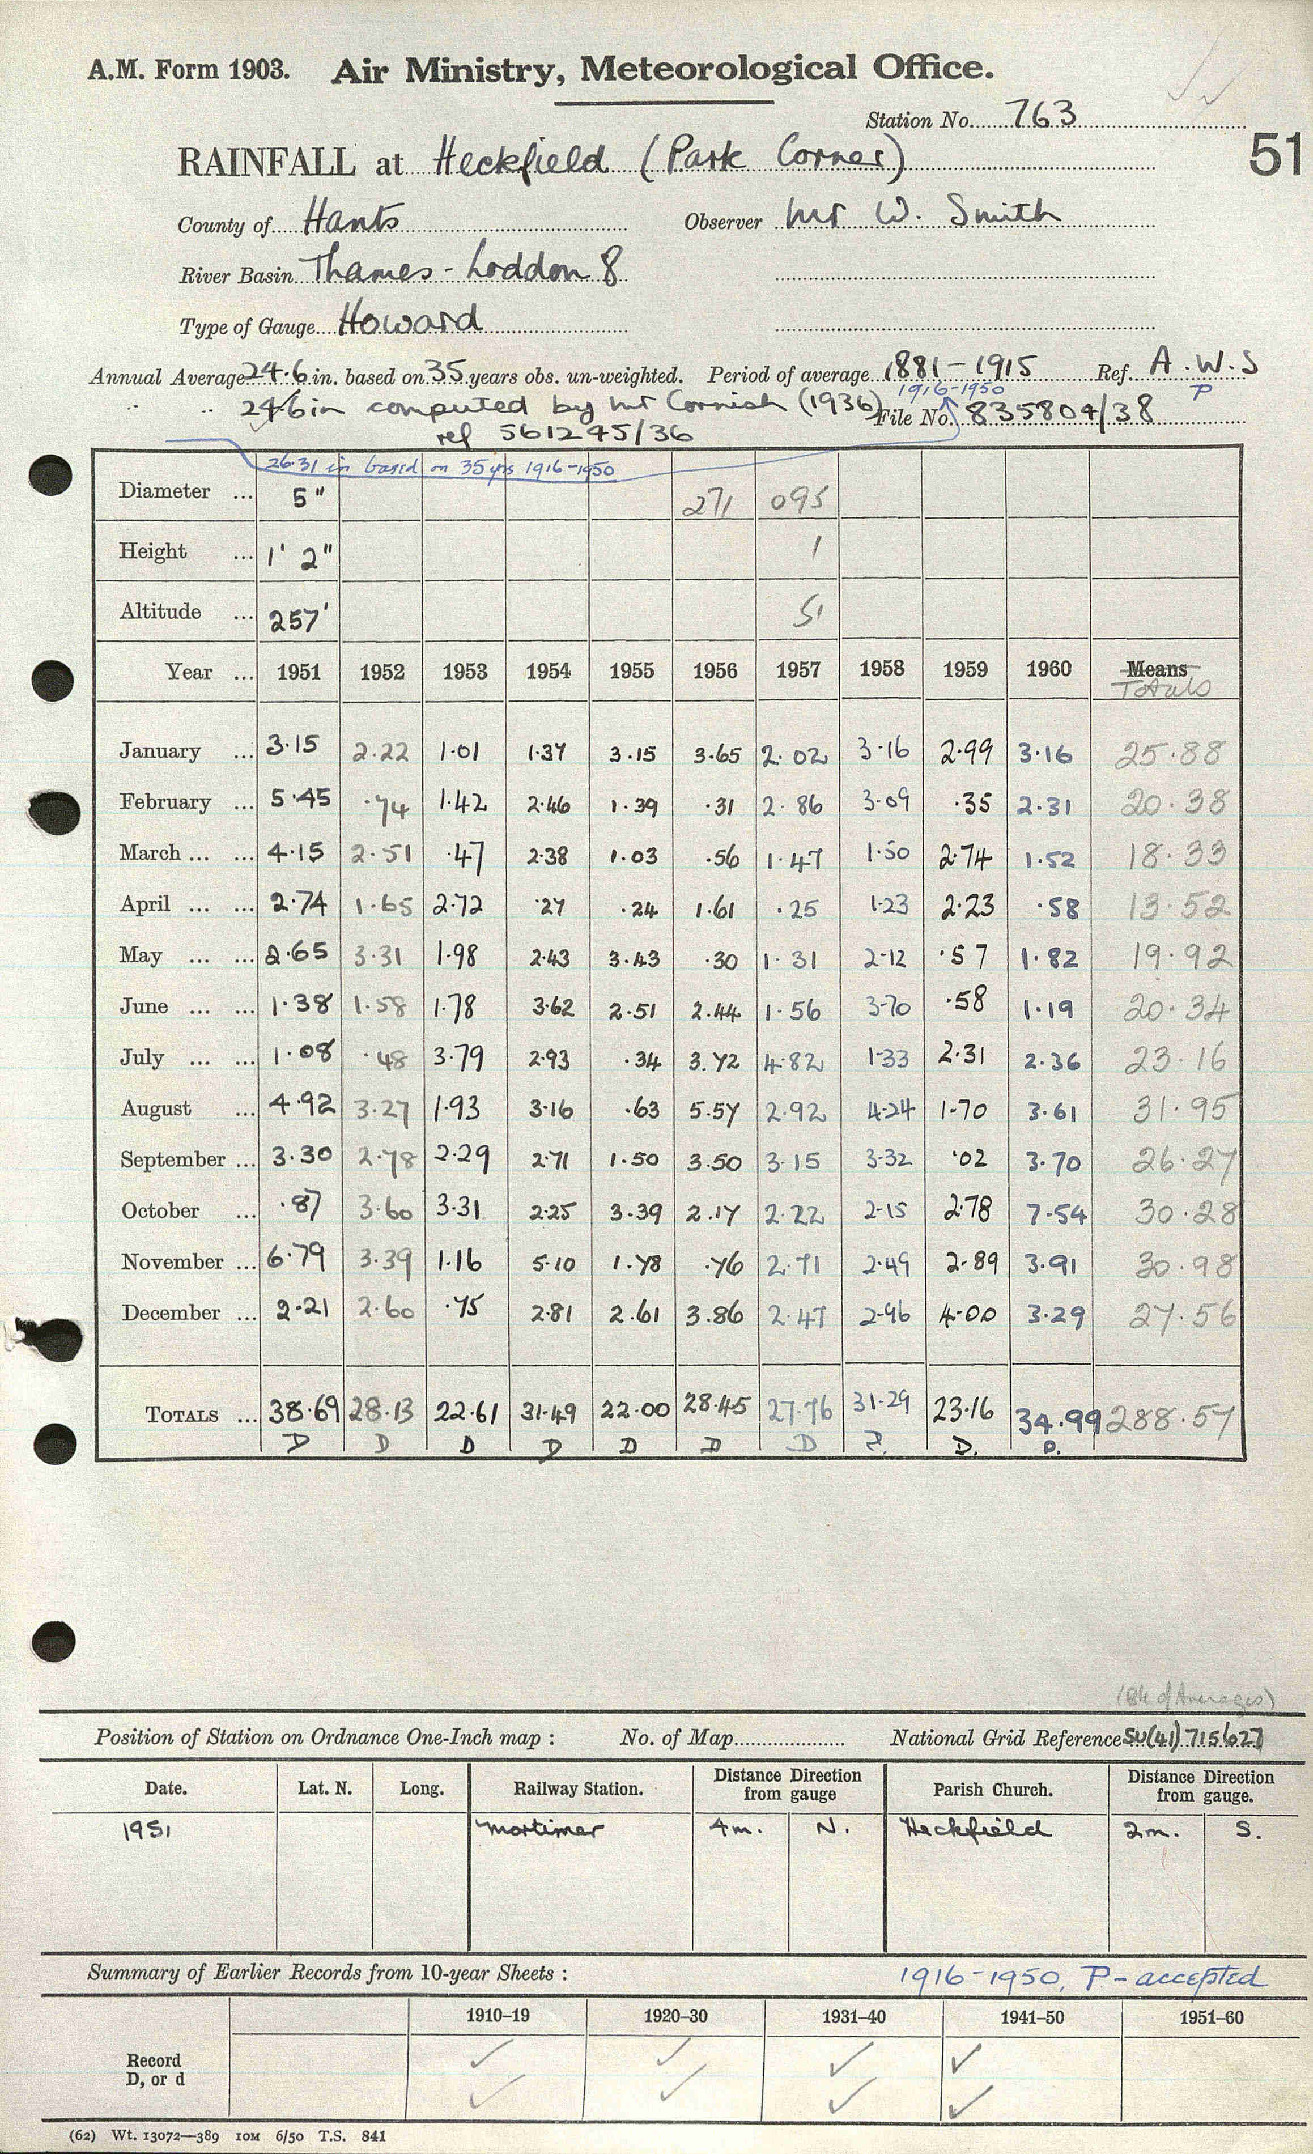 A.M. Form 1903. Air Ministry, Meteorological Office.
Station No. 763
51
RAINFALL at Heckfield (Park Corner)
County of Hants Observer Mr W. Smith
River Basin Thames - Loddon 8
Type of Gauge Howard
Annual Average 24.6 in. based on 35 years obs. un-weighted. Period of average 1881-1915 Ref. A.W.S
1916-1950 P
" " 24.6 in computed by Mr Cornish (1936) File No. 835804/38
ref 561245/36
26.31 in based on 35 yrs 1916-1950
Diameter ... 5" 271 095
Height ... 1' 2" 1
Altitude ... 257' 51
Year ... 1951 1952 1953 1954 1955 1956 1957 1958 1959 1960 Means
Totals
January ... 3.15 2.22 1.01 1.37 3.15 3.65 2.02 3.16 2.99 3.16 25.88
February ... 5.45 .74 1.42 2.46 1.39 .31 2.86 3.09 .35 2.31 20.38
March ... ... 4.15 2.51 .47 2.38 1.03 .56 1.47 1.50 2.74 1.52 18.33
April ... ... 2.74 1.65 2.72 .27 .24 1.61 .25 1.23 2.23 .58 13.52
May ... ... 2.65 3.31 1.98 2.43 3.43 .30 1.31 2.12 .57 1.82 19.92
June ... ... 1.38 1.58 1.78 3.62 2.51 2.44 1.56 3.70 .58 1.19 20.34
July ... ... 1.08 .48 3.79 2.93 .34 3.72 4.82 1.33 2.31 2.36 23.16
August ... 4.92 3.27 1.93 3.16 .63 5.57 2.92 4.24 1.70 3.61 31.95
September ... 3.30 2.78 2.29 2.71 1.50 3.50 3.15 3.32 .02 3.70 26.27
October ... .87 3.60 3.31 2.25 3.39 2.17 2.22 2.15 2.78 7.54 30.28
November ... 6.79 3.39 1.16 5.10 1.78 .76 2.71 2.49 2.89 3.91 30.98
December ... 2.21 2.60 .75 2.81 2.61 3.86 2.47 2.96 4.00 3.29 27.56
TOTALS ... 38.69 28.13 22.61 31.49 22.00 28.45 27.76 31.29 23.16 34.99 288.57
D D D D D D D P. D. P.
(Bk of Averages)
Position of Station on Ordnance One-Inch map : No. of Map National Grid Reference SU(41) 715627
Date. Lat. N. Long. Railway Station. Distance from gauge Direction Parish Church. Distance from gauge. Direction
1951 Mortimer 4m. N. Heckfield 2m. S.
Summary of Earlier Records from 10-year Sheets : 1916-1950, P-accepted
1910–19 1920–30 1931–40 1941–50 1951–60
Record ✓ ✓ ✓ ✓
D, or d ✓ ✓ ✓ ✓
(62) Wt. 13072—389 10M 6/50 T.S. 841